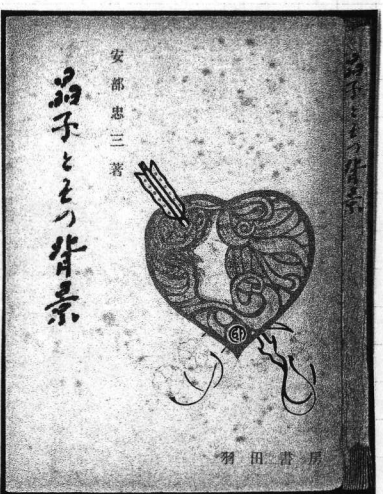 安部忠三著
晶子とその背景
羽田書房
晶子とその背景